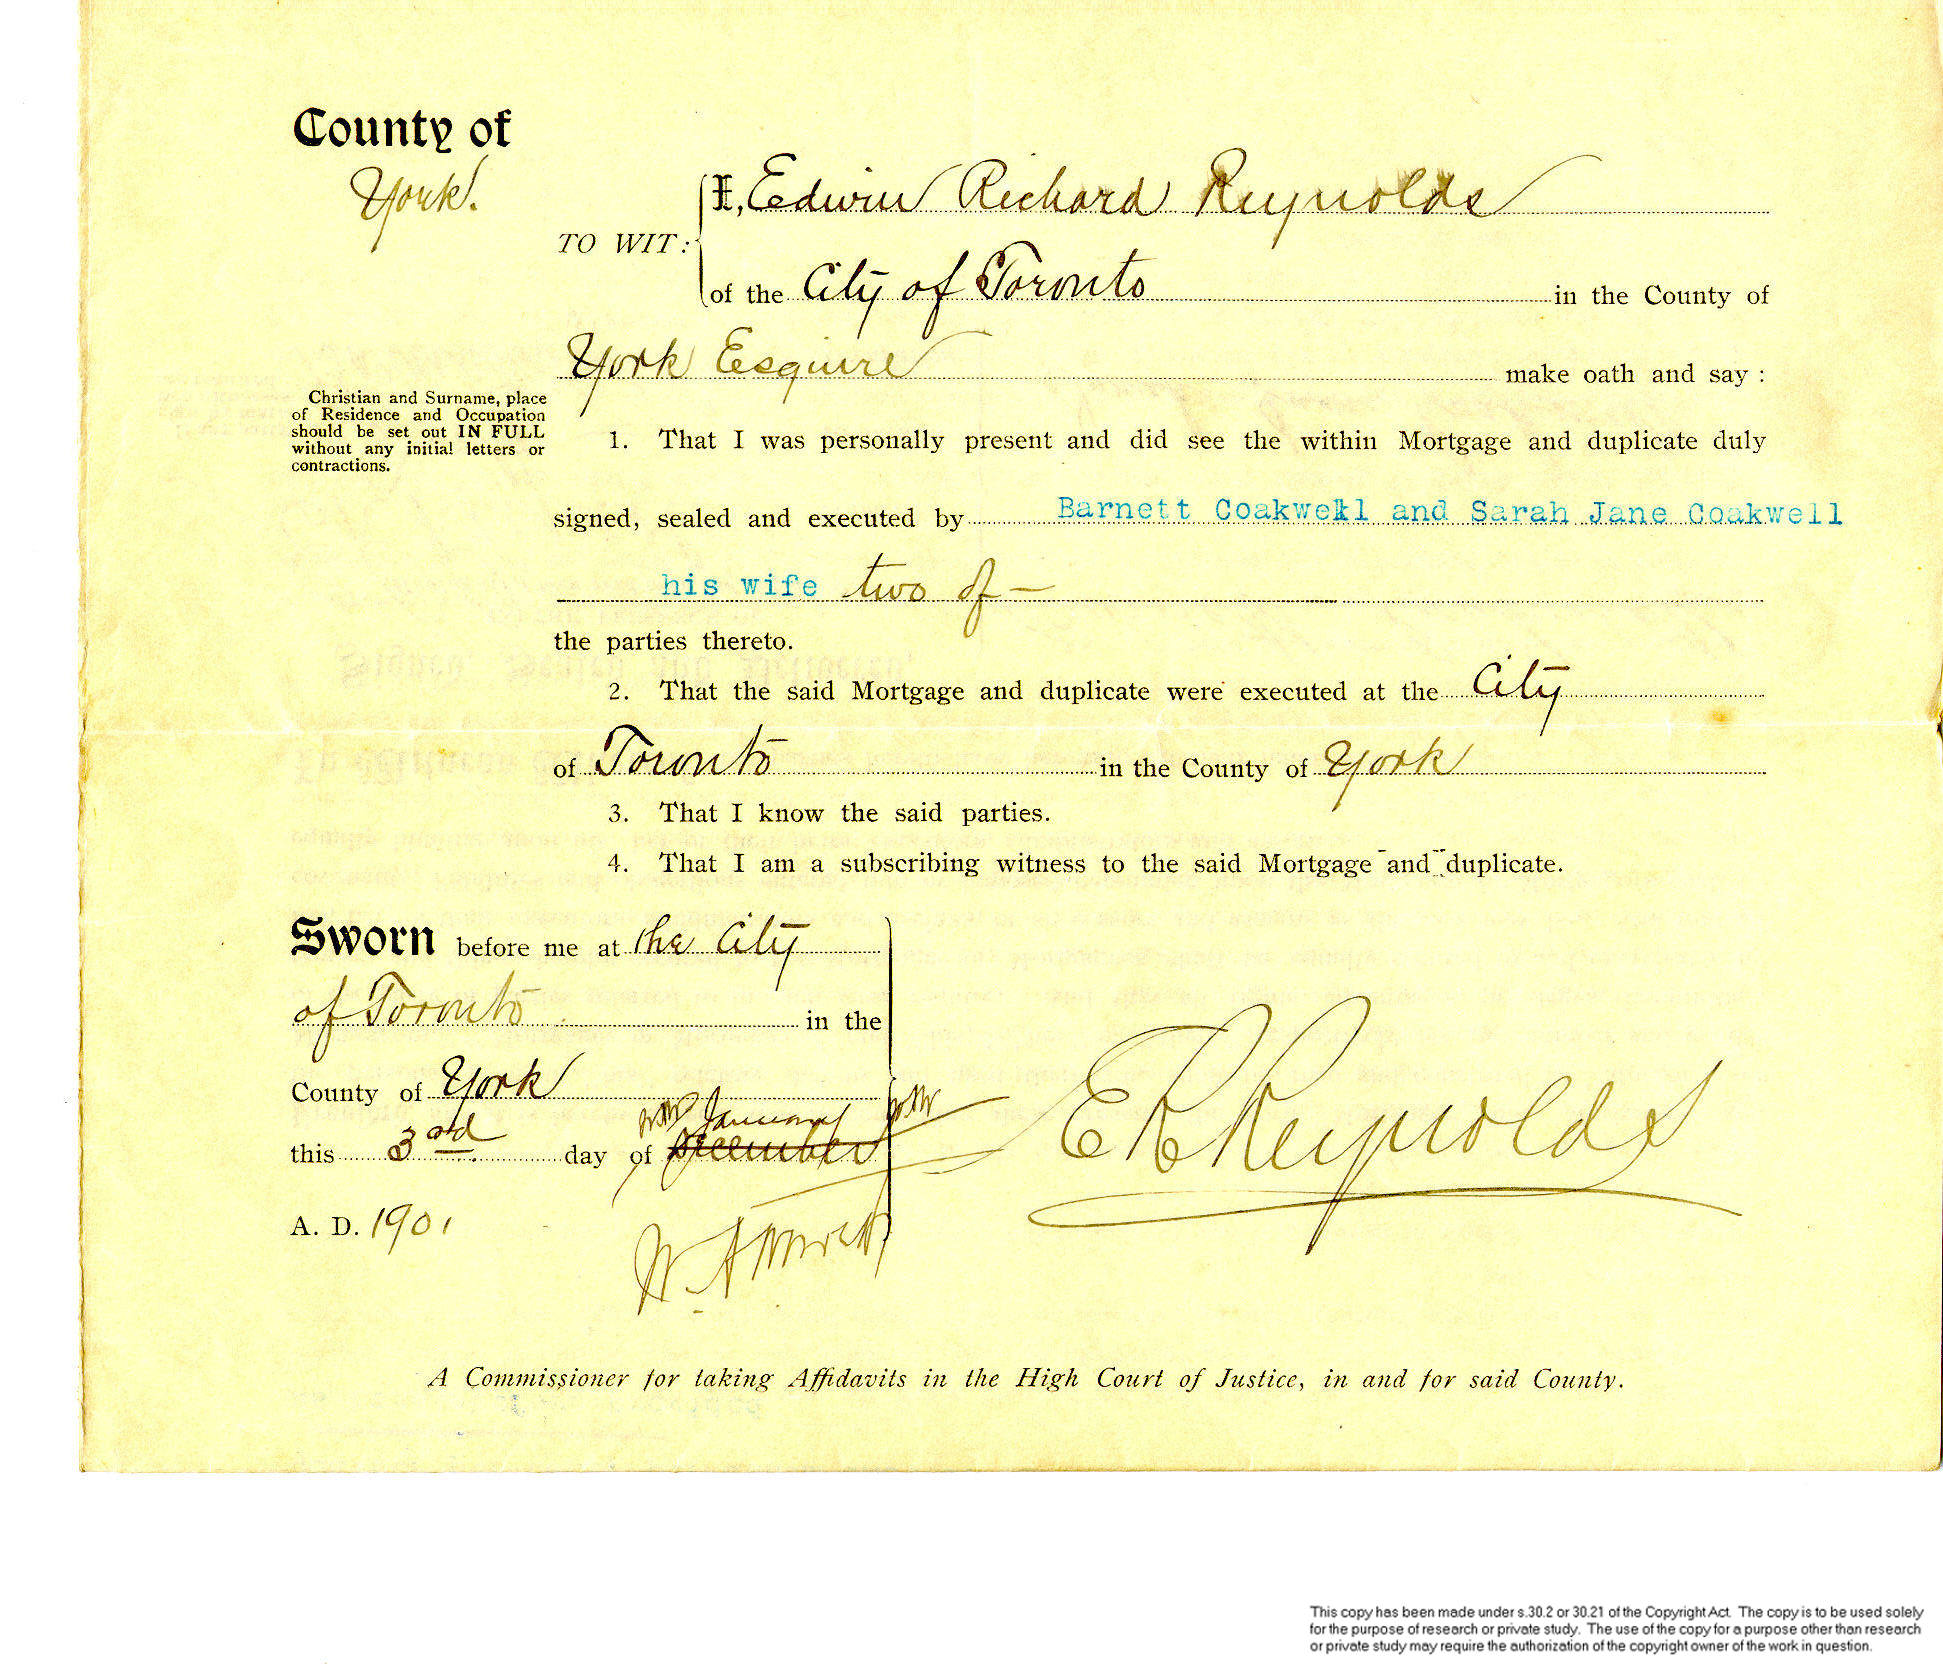 County of
York.
I, Edwin Richard Reynolds
TO WIT:
of the City of Toronto in the County of
York Esquire make oath and say :
Christian and Surname, place
of Residence and Occupation
should be set out IN FULL
without any initial letters or
contractions.
1. That I was personally present and did see the within Mortgage and duplicate duly
signed, sealed and executed by Barnett Coakwell and Sarah Jane Coakwell
his wife two of —
the parties thereto.
2. That the said Mortgage and duplicate were executed at the City
of Toronto in the County of York
3. That I know the said parties.
4. That I am a subscribing witness to the said Mortgage and duplicate.
Sworn before me at the City
of Toronto in the
County of York
January
this 3rd day of December
A. D. 1901
E R Reynolds
A Commissioner for taking Affidavits in the High Court of Justice, in and for said County.
This copy has been made under s.30.2 or 30.21 of the Copyright Act. The copy is to be used solely
for the purpose of research or private study. The use of the copy for a purpose other than research
or private study may require the authorization of the copyright owner of the work in question.